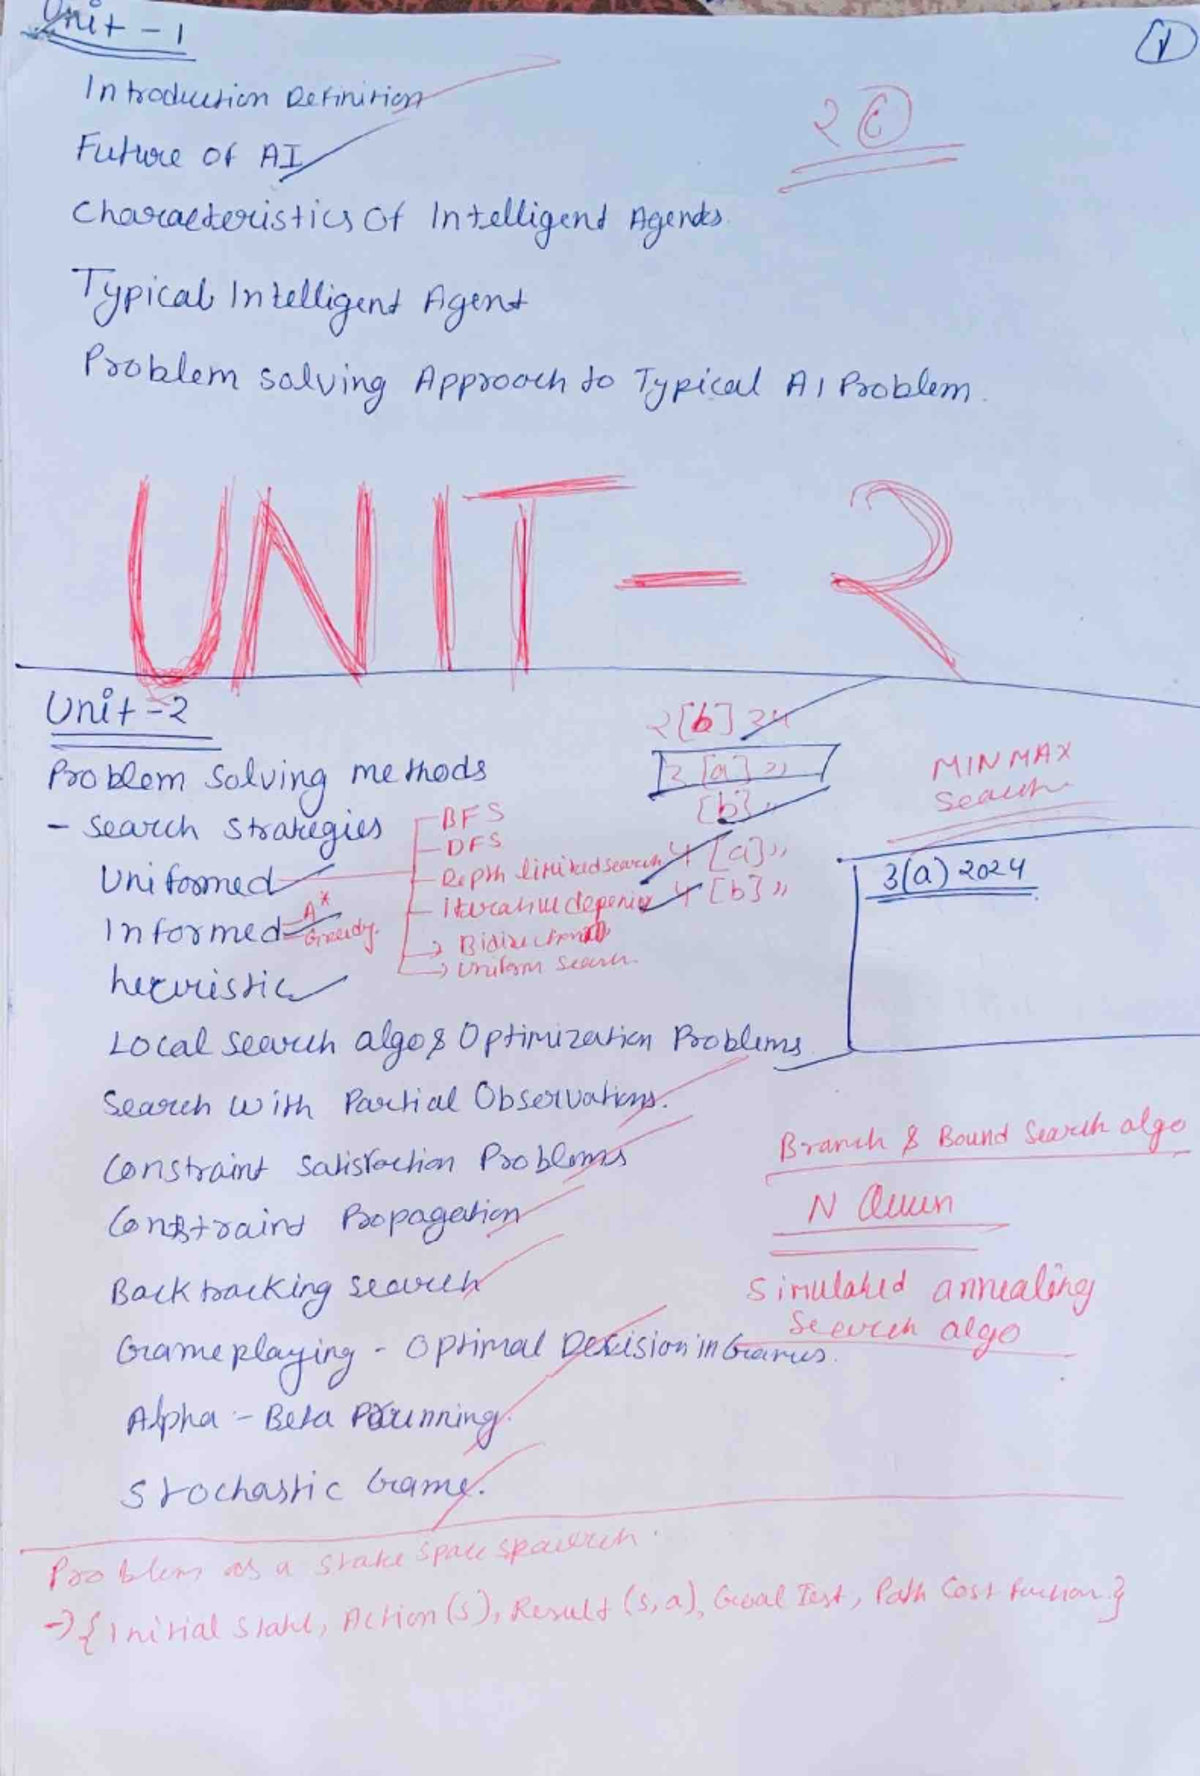 Unit - 1
1
Introduction Definition
2 C
Future of AI
Characteristics Of Intelligent Agents.
Typical Intelligent Agent
Problem solving Approach to Typical AI Problem.
UNIT - 2
Unit - 2
2 [b] 24
Problem solving methods
3 [a] "
[b] "
MINMAX
Search
- Search Strategies
BFS
DFS
Uniformed
Depth limited search 4 [a] "
3(a) 2024
Informed
A*
Greedy.
Iterative 4 [b] "
→ Bidirectional
→ Uniform Search.
heuristic
Local Search algo & Optimization Problems
Search with Partial Observations.
Branch & Bound Search algo
Constraint Satisfaction Problems
N Queen
Constraint Propagation
Backtracking search
Simulated annealing
Search algo
Gameplaying - Optimal Decision in Games.
Alpha - Beta
Stochastic Game.
Problem as a state space
→ {Initial State, Action (s), Result (s, a), Goal Test, Path Cost}